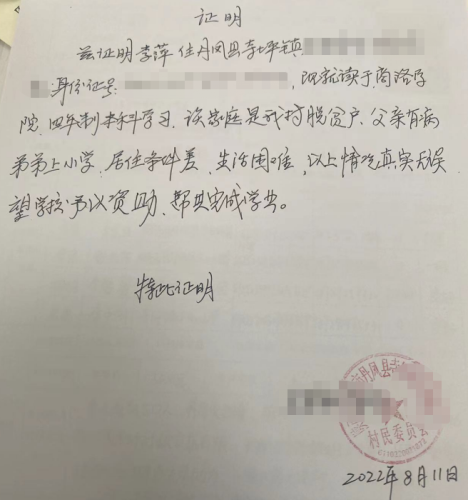 证明
兹证明李萍 住丹凤县李坪镇
身份证号: ，现就读于商洛学
院，四年制本科学习，该家庭是我村脱贫户，父亲有病
弟弟上小学，居住条件差，生活困难，以上情况真实无误
望学校予以资助，帮其完成学业。
特此证明
丹凤县
村民委员会
2022年8月11日